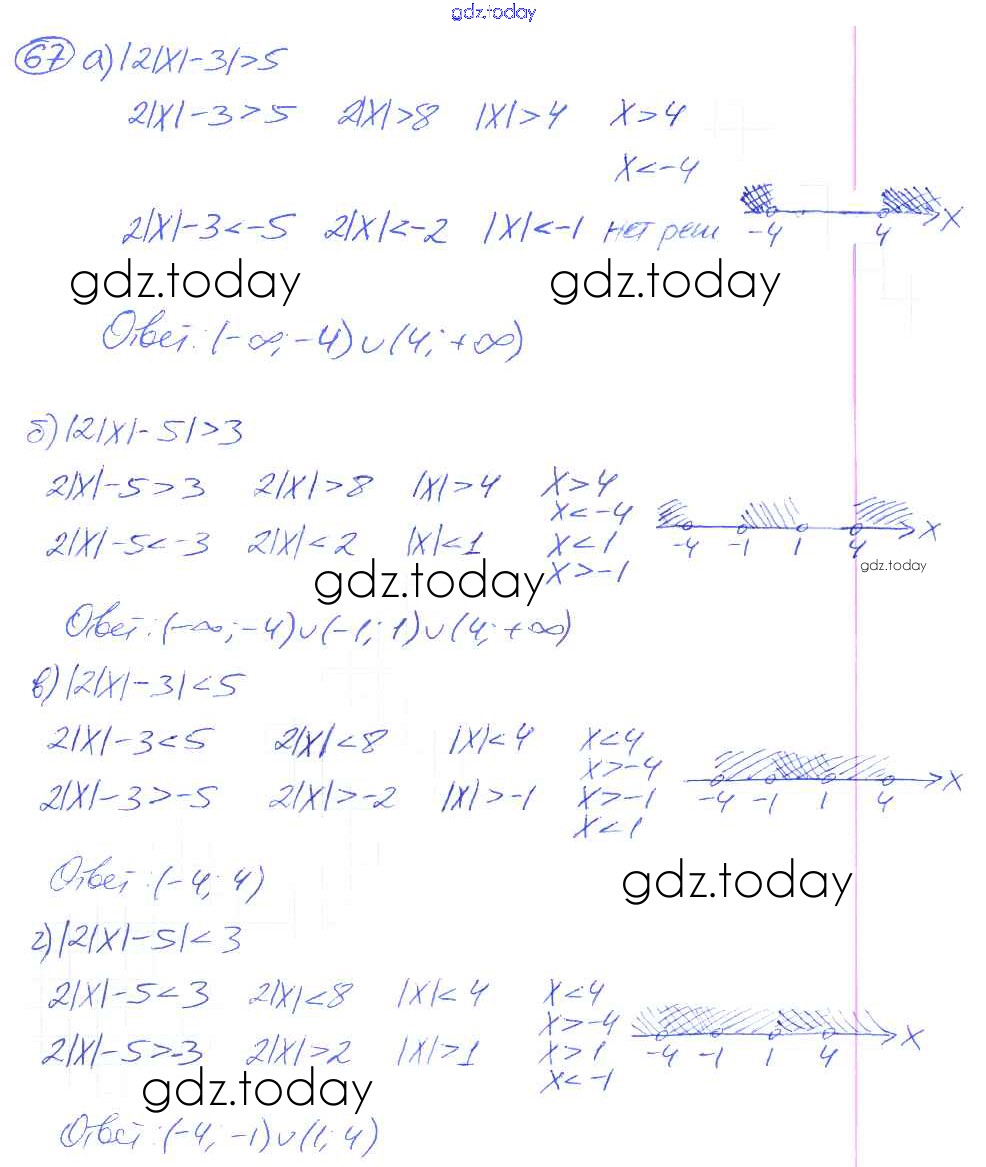 gdz.today
67 а) |2|x|-3|>5
2|x|-3>5 2|x|>8 |x|>4 x>4
x<-4
2|x|-3<-5 2|x|<-2 |x|<-1 нет реш
-4 4 x
gdz.today gdz.today
Ответ: (-∞; -4)∪(4; +∞)
б) |2|x|-5|>3
2|x|-5>3 2|x|>8 |x|>4 x>4
x<-4
2|x|-5<-3 2|x|<2 |x|<1 x<1
-4 -1 1 4 x
gdz.today x>-1
gdz.today
Ответ: (-∞; -4)∪(-1; 1)∪(4; +∞)
в) |2|x|-3|<5
2|x|-3<5 2|x|<8 |x|<4 x<4
x>-4
2|x|-3>-5 2|x|>-2 |x|>-1 x>-1
x<1
-4 -1 1 4 x
Ответ: (-4; 4)
gdz.today
г) |2|x|-5|<3
2|x|-5<3 2|x|<8 |x|<4 x<4
x>-4
2|x|-5>-3 2|x|>2 |x|>1 x>1
x<-1
-4 -1 1 4 x
gdz.today
Ответ: (-4; -1)∪(1; 4)